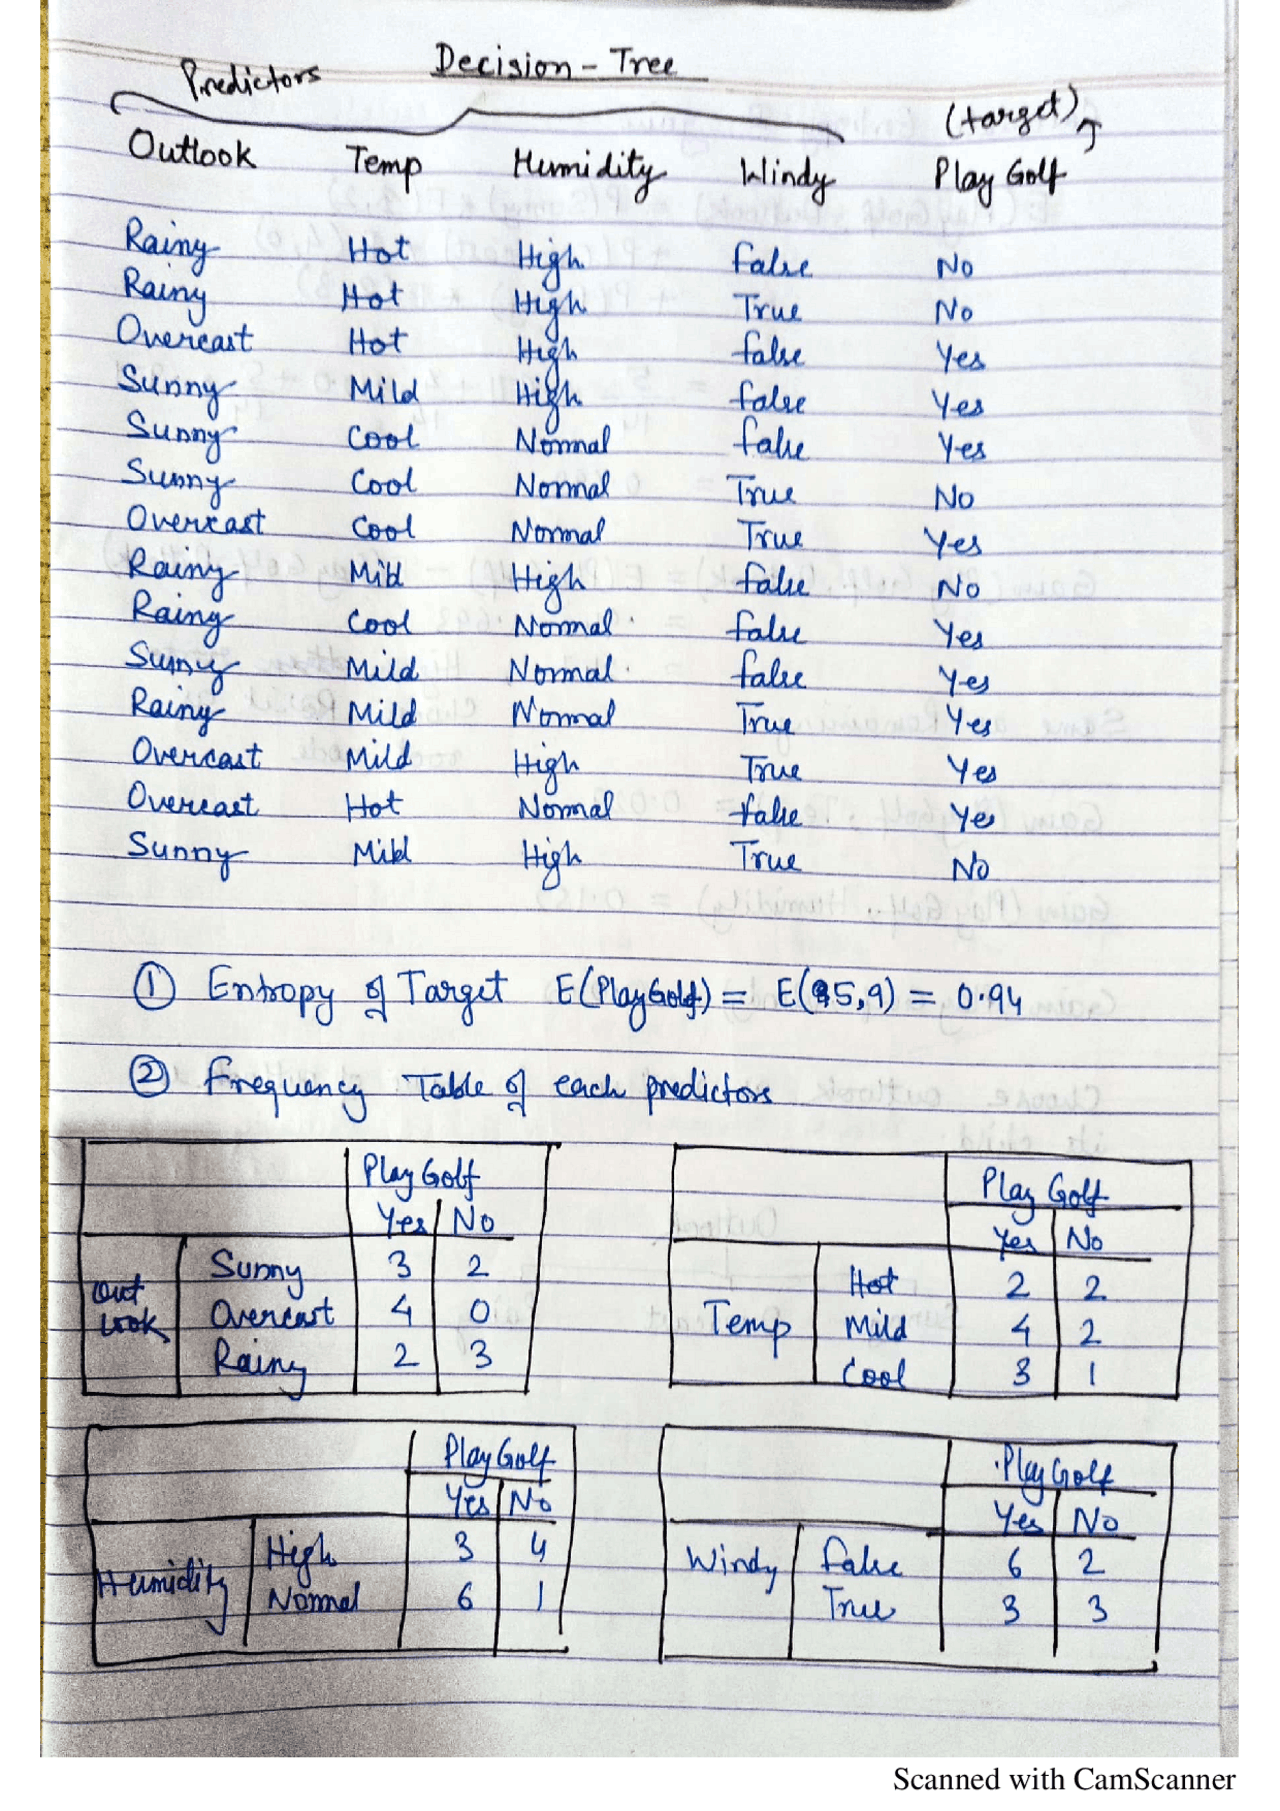 Decision - Tree
Predictors
(target)
Outlook Temp Humidity Windy Play Golf
Rainy Hot High False No
Rainy Hot High True No
Overcast Hot High false Yes
Sunny Mild High false Yes
Sunny Cool Normal false Yes
Sunny Cool Normal True No
Overcast Cool Normal True Yes
Rainy Mild High false No
Rainy Cool Normal false Yes
Sunny Mild Normal false Yes
Rainy Mild Normal True Yes
Overcast Mild High True Yes
Overcast Hot Normal false Yes
Sunny Mild High True No
① Entropy of Target E(PlayGolf) = E(5,9) = 0.94
② Frequency Table of each predictors
Play Golf
Yes No
Out look
Sunny 3 2
Overcast 4 0
Rainy 2 3
Play Golf
Yes No
Temp
Hot 2 2
Mild 4 2
Cool 3 1
Play Golf
Yes No
Humidity
High 3 4
Normal 6 1
Play Golf
Yes No
Windy
false 6 2
True 3 3
Scanned with CamScanner